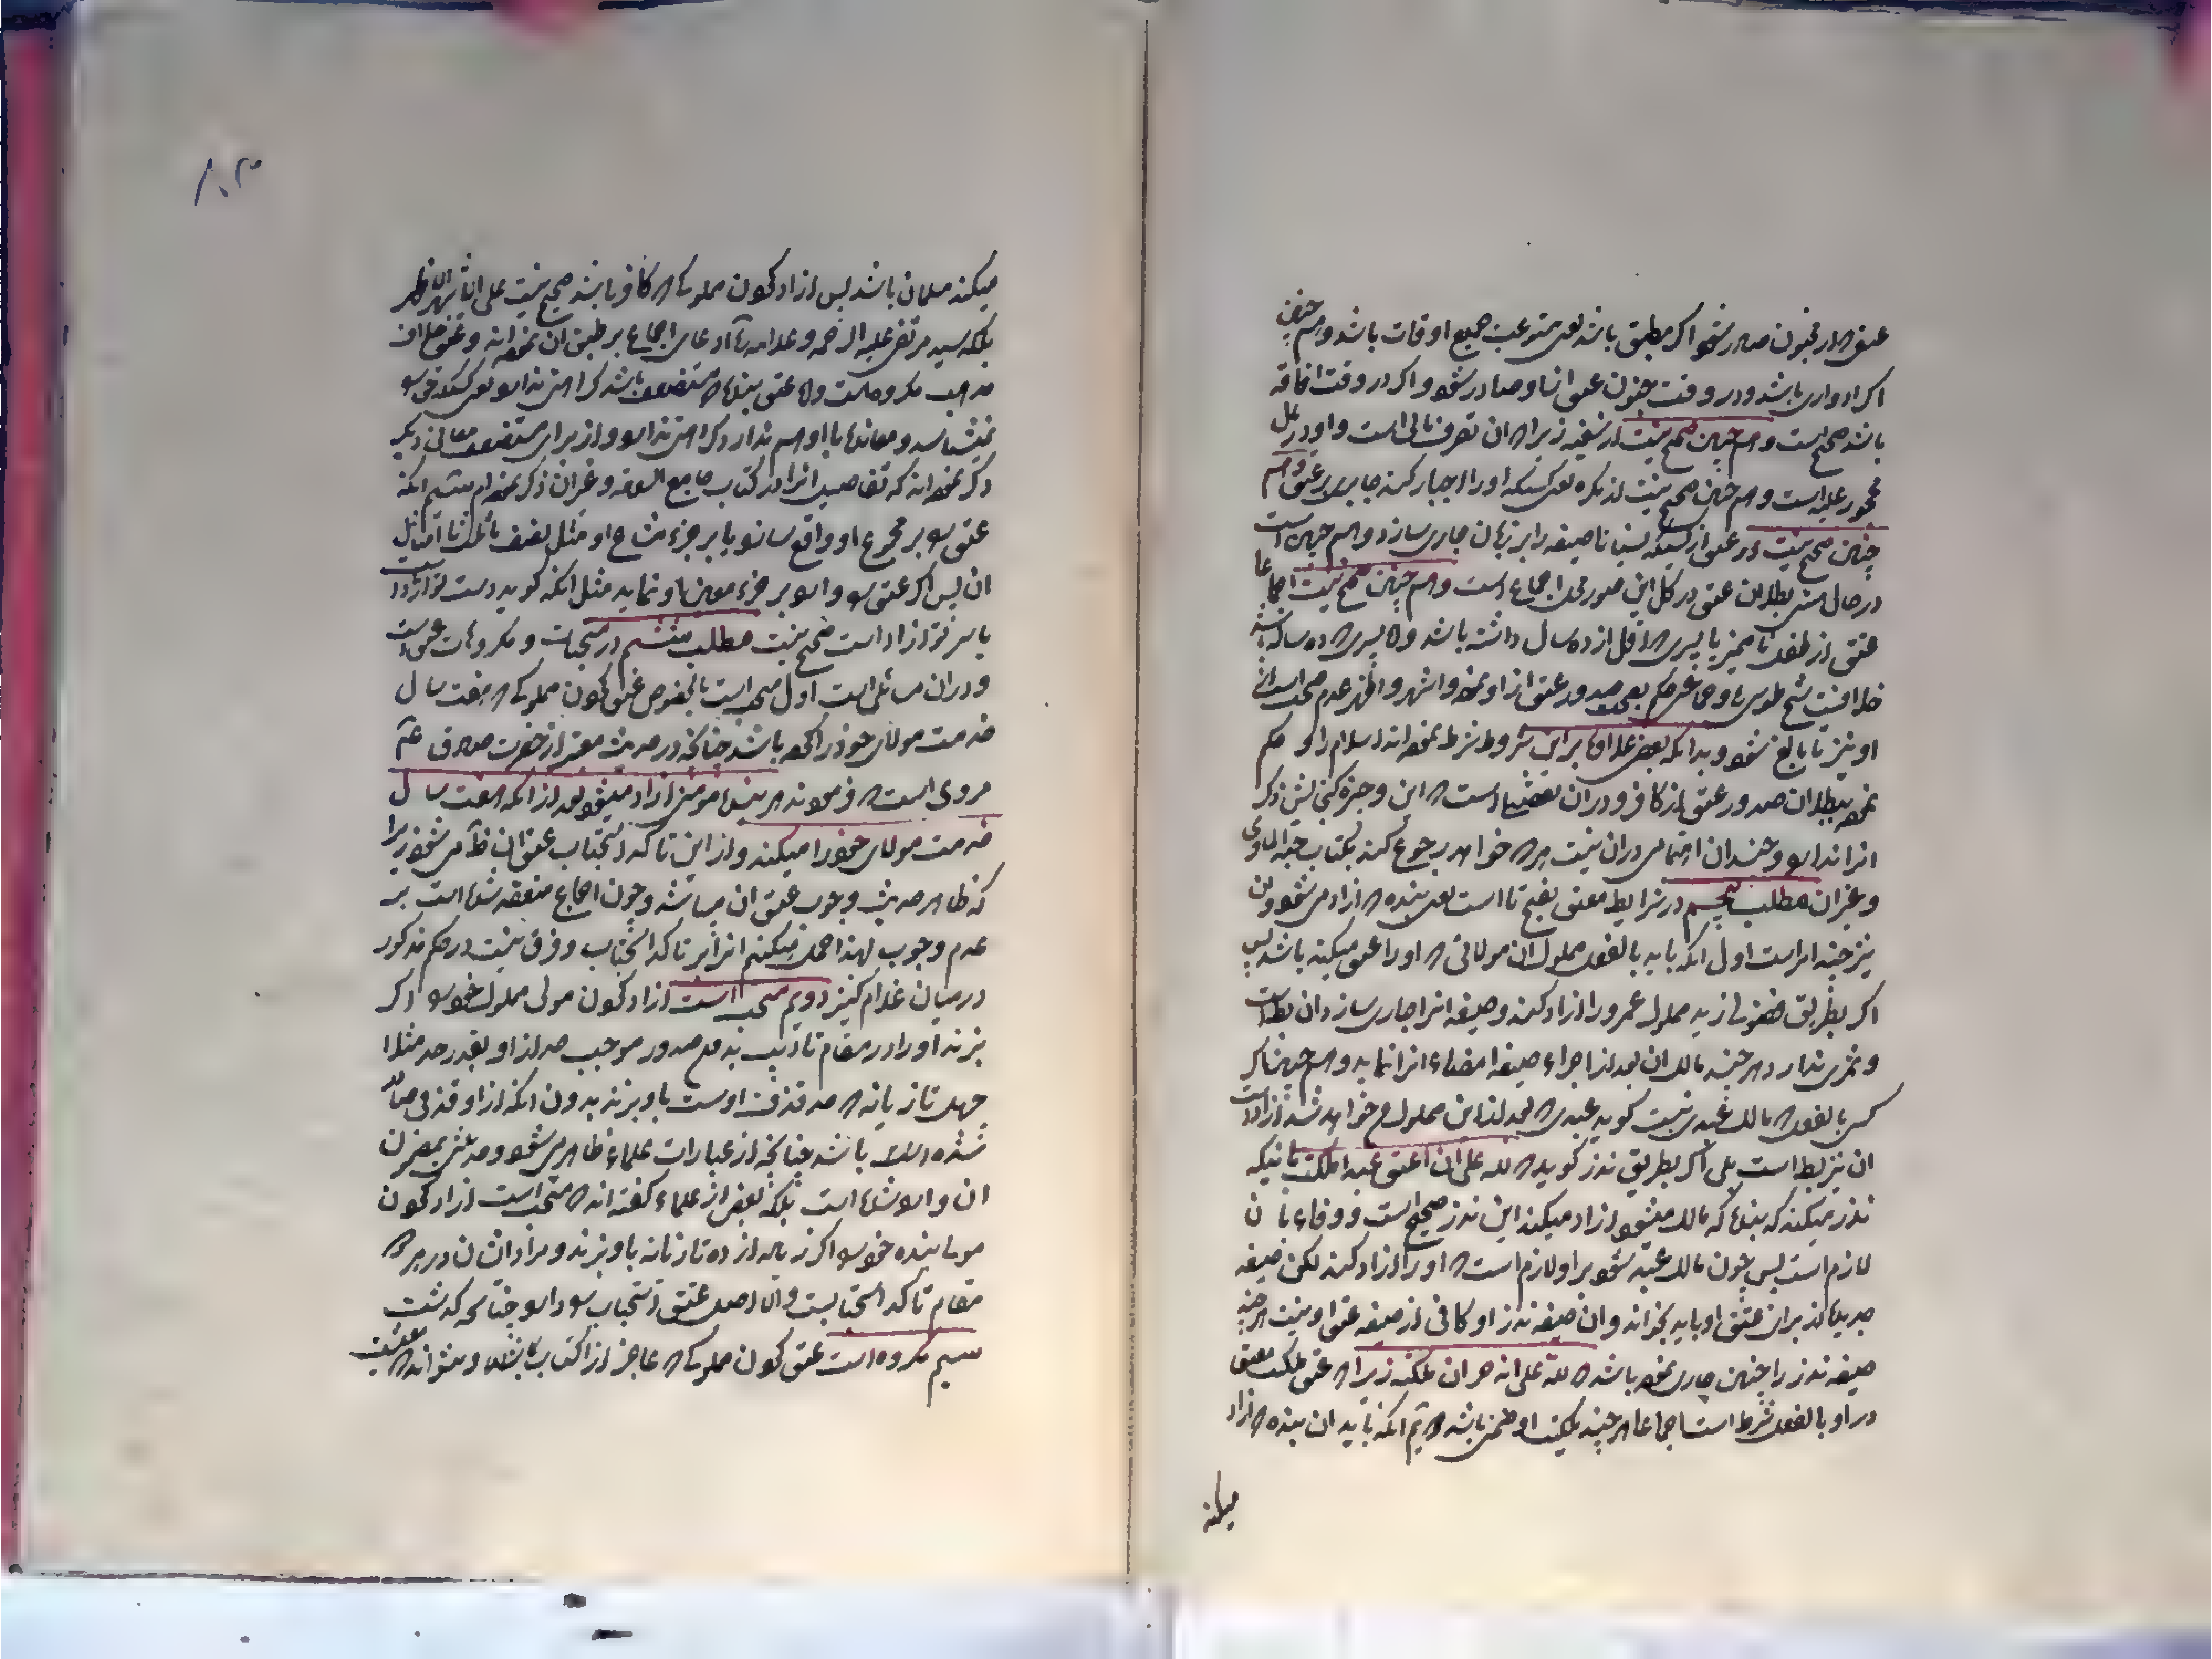 عتق که از مجنون صادر شود اگر مطبق باشد یعنی مستوعب جمیع اوقات باشد و هم چنین
اگر ادواری باشد و در وقت جنون عتق از او صادر شود و اگر در وقت افاقه
باشد صحیح است و هم چنین صحیح نیست از سفیه زیرا که ان تصرف مالی است و او در مال
محجور علیه است و هم چنین صحیح نیست از مکره یعنی کسیکه او را اجبار کند جابری بر عتق و هم
چنین صحیح نیست عتق از کسیکه نسیانا صیغه را بر زبان جاری سازد و هم چنین است
در حال بطلان عتق در کل این صور محل اجماع است و هم چنین صحیح نیست اجماعا
عتق از طفل نا ممیز یا پسری که اقل از ده سال داشته باشد و اما پسری که ده ساله باشد
خلافیست شیخ طوسی و جمعی حکم بصحت صدور عتق از او نموده و اشهر و اظهر عدم صحت است از
او نیز تا بالغ شود و بدانکه بعض علما بر این شروط شرط نموده اند اسلام را و حکم
نموده ببطلان صدور عتق از کافر و در ان تفصیلها است که این وجیزه گنجایش ذکر
انرا ندارد و چندان اهتمامی در ان نیست هر که خواهد رجوع کند بکتاب
و غیر ان مطلب پنجم در شرایط معتق بفتح تا است یعنی بنده که ازاد می شود و ان
نیز چند امر است اول انکه باید بالفعل مملوک ان مولائی که او را عتق میکند باشد پس
اگر بطریق فضولی زید مملوک عمرو را ازاد کند و صیغه انرا جاری سازد ان باطل است
و ثمری ندارد هر چند مالک ان بعد از اجراء صیغه امضاء انرا نماید و هم چنین اگر
کسی بالفعل که مالک عبدی نیست گوید عبدی که بعد از این مملوک من خواهد شد ازاد است
ان نیز باطل است بلی اگر بطریق نذر گوید که لله علی ان اعتق عبدا املکه باینکه
نذر میکند که بنده که مالک میشود ازاد میکند این نذر صحیح است و وفاء با ن
لازم است پس چون مالک عبد شود بر او لازم است که او را ازاد کند لکن صیغه
جدیده از برای عتق او باید بخواند و ان صیغه نذر او کافی از صیغه عتق او نیست هر چند
صیغه نذر را چنین جاری نموده باشد که لله علی انه حر ان ملکته زیرا که عتق ملکیت معتق
در او بالفعل شرط است اجماعا هر چند ملکیت او ضمنی باشد دویم انکه باید ان بنده که ازاد
میکند
۱۰۳
میکند مسلمان باشد پس ازاد کردن مملوکی که کافر باشد صحیح نیست علی الاشهر الاظهر
بلکه سید مرتضی علیه الرحمه و علامه ادعای اجماع بر طبق ان نموده اند و عتق مخالف
مذهب مکروه است و اما عتق بنده که مستضعف باشد کراهتی ندارد یعنی کسیکه حق را
نمیشناسد و معاندة با او هم ندارد کراهتی ندارد و از برای مستضعف معانی دیگر
ذکر نموده اند که تفاصیل انرا در کتاب جامع و غیر ان ذکر نموده ام سیم انکه
عتق را بر مجموع او واقع سازد یا بر جزء مشاع او مثل نصف یا ثلث یا امثال
ان پس اگر عتق را وارد بر جزء معین او نماید مثل انکه گوید دست تو ازاد است
یا سر تو ازاد است صحیح نیست مطلب ششم در مستحبات و مکروهات عتق است
و در ان مسائلی است اول مستحب است بالخصوص عتق کردن مملوکی که هفت سال
خدمت مولای خود را کرده باشد چنانچه در حدیث معتبر از حضرت صادق ع
مروی است که فرمودند هر بنده مومنی ازاد میشود بعد از انکه هفت سال
خدمت مولای خود را میکند و از این تاکد استحباب عتق ان ظاهر می شود زیرا
که ظاهر حدیث وجوب عتق ان میباشد و چون اجماع منعقد شده است بر
عدم وجوب لهذا حمل میکنیم انرا بر تاکد استحباب و فرق نیست در حکم مذکور
در میان غلام و کنیز دویم مستحب است ازاد کردن مولی مملوک خود را اگر
بزند او را در مقام تادیب بدون صدور موجب حد از او بقدر حد مثلا
چهل تازیانه که حد قذف اوست باو بزند بدون انکه از او قذفی صادر
شده باشد چنانچه از عبارات علماء ظاهر می شود و حدیثی بمضمون
ان وارد شده است بلکه بعض از علماء گفته اند که مستحب است ازاد کردن
مولی بنده خود را اگر زیاده از ده تازیانه باو بزند و مراد اشان در هر دو
مقام تاکد استحبابست و الا اصل عتق استحباب را دارد چنانچه گذشت
سیم مکروه است عتق کردن مملوکی که عاجز از اکتساب باشد و نتواند که معیشت